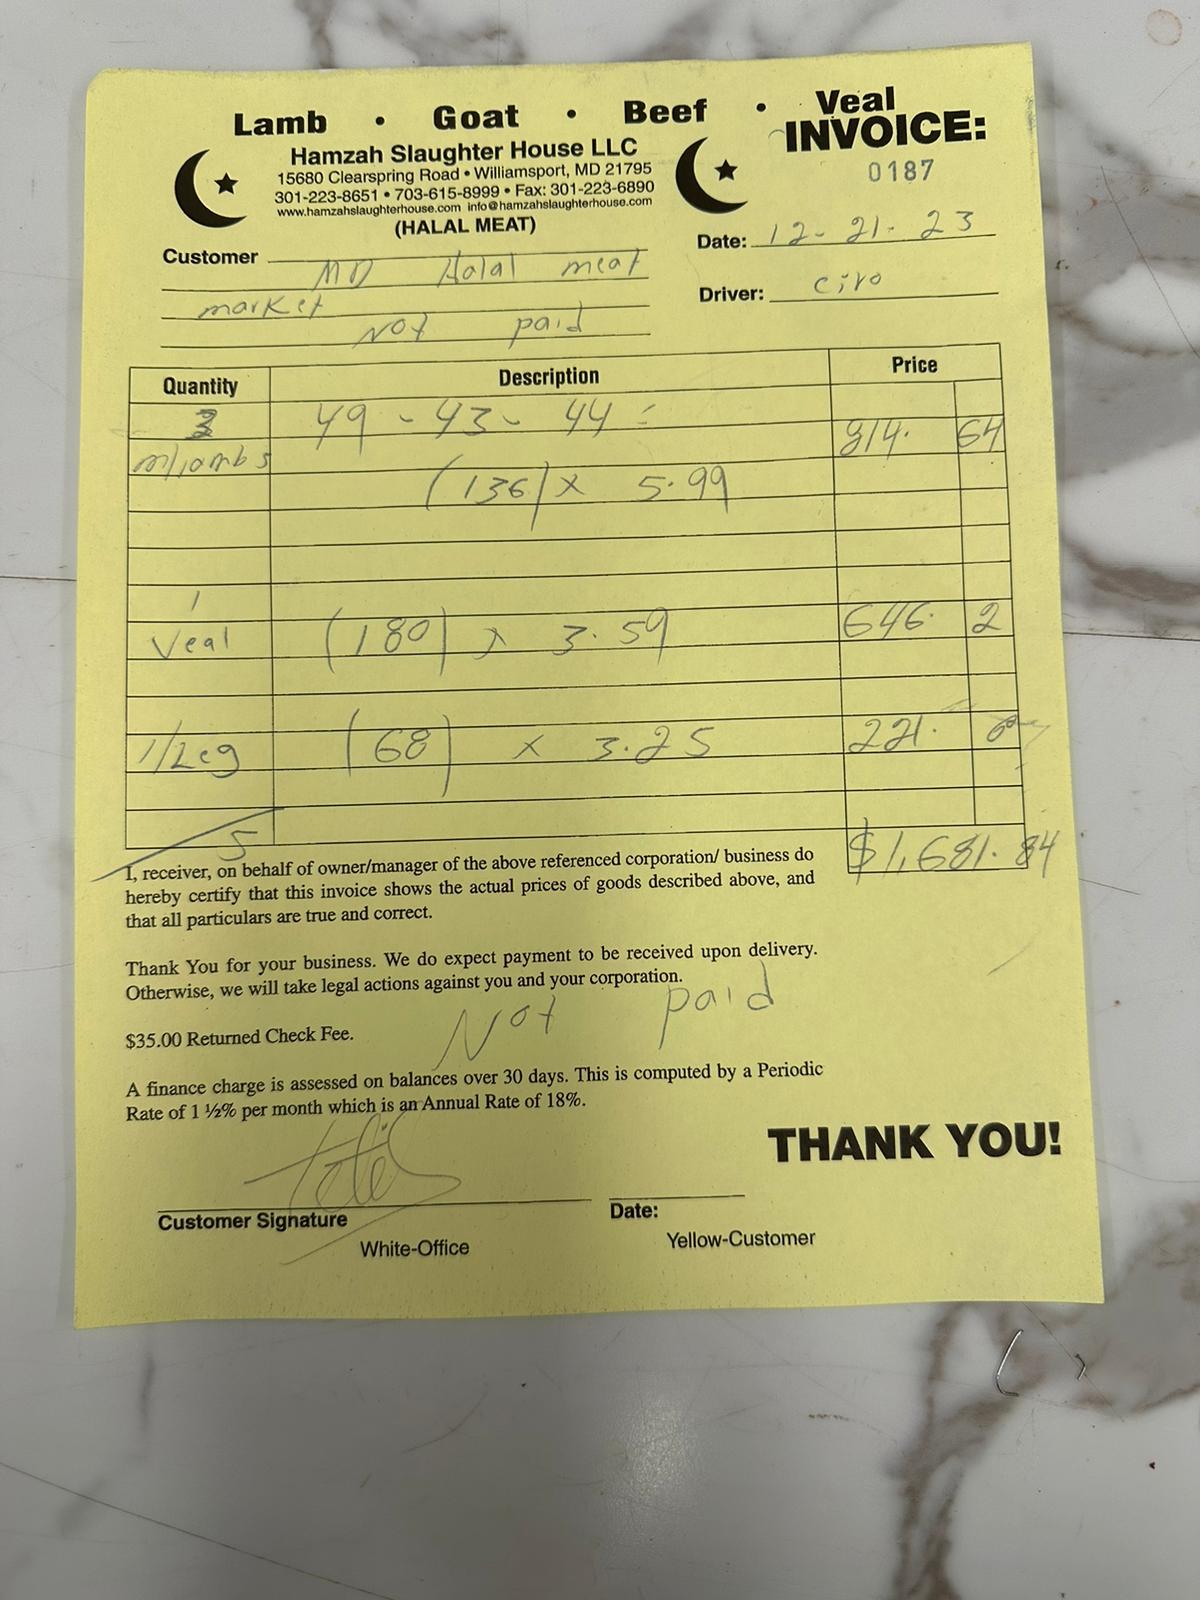 Lamb • Goat • Beef • Veal
INVOICE:
0187
Hamzah Slaughter House LLC
15680 Clearspring Road • Williamsport, MD 21795
301-223-8651 • 703-615-8999 • Fax: 301-223-6890
www.hamzahslaughterhouse.com info@hamzahslaughterhouse.com
(HALAL MEAT)
Date: 12-21-23
Driver: Ciro
Customer MD Halal meat
market
Not paid
Quantity Description Price
3 49 - 43 - 44 = 814. 64
lambs
(136) x 5.99
1
Veal (180) x 3.59 646. 2
1/Leg (68) x 3.25 221.
5
$1,681.84
I, receiver, on behalf of owner/manager of the above referenced corporation/ business do
hereby certify that this invoice shows the actual prices of goods described above, and
that all particulars are true and correct.
Thank You for your business. We do expect payment to be received upon delivery.
Otherwise, we will take legal actions against you and your corporation.
Not paid
$35.00 Returned Check Fee.
A finance charge is assessed on balances over 30 days. This is computed by a Periodic
Rate of 1 ½% per month which is an Annual Rate of 18%.
THANK YOU!
Customer Signature Date:
White-Office Yellow-Customer